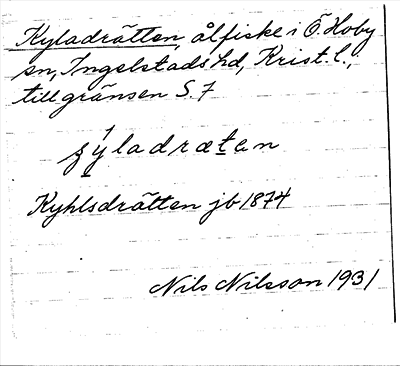 Kyladrätten, ålfiske i Ö. Hoby
sn, Ingelstads hd, Krist. l.,
till gränsen S. 7
ýladrætan
Kyhlsdrätten jb 1874
Nils Nilsson 1931